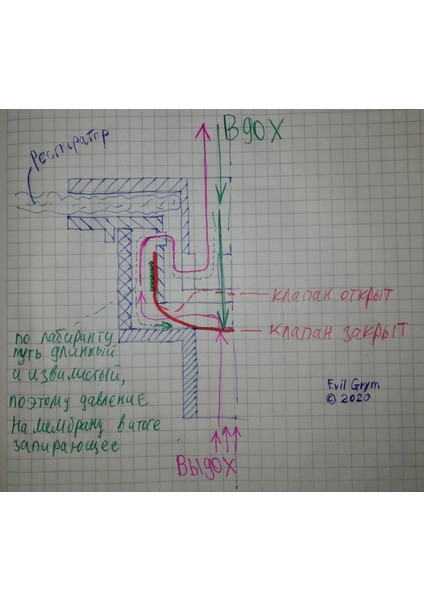 Вдох
Респиратор
клапан открыт
клапан закрыт
по лабиринту
путь длинный
и извилистый,
поэтому давление
на мембрану в итоге
запирающее
Evil Grym
© 2020
Выдох